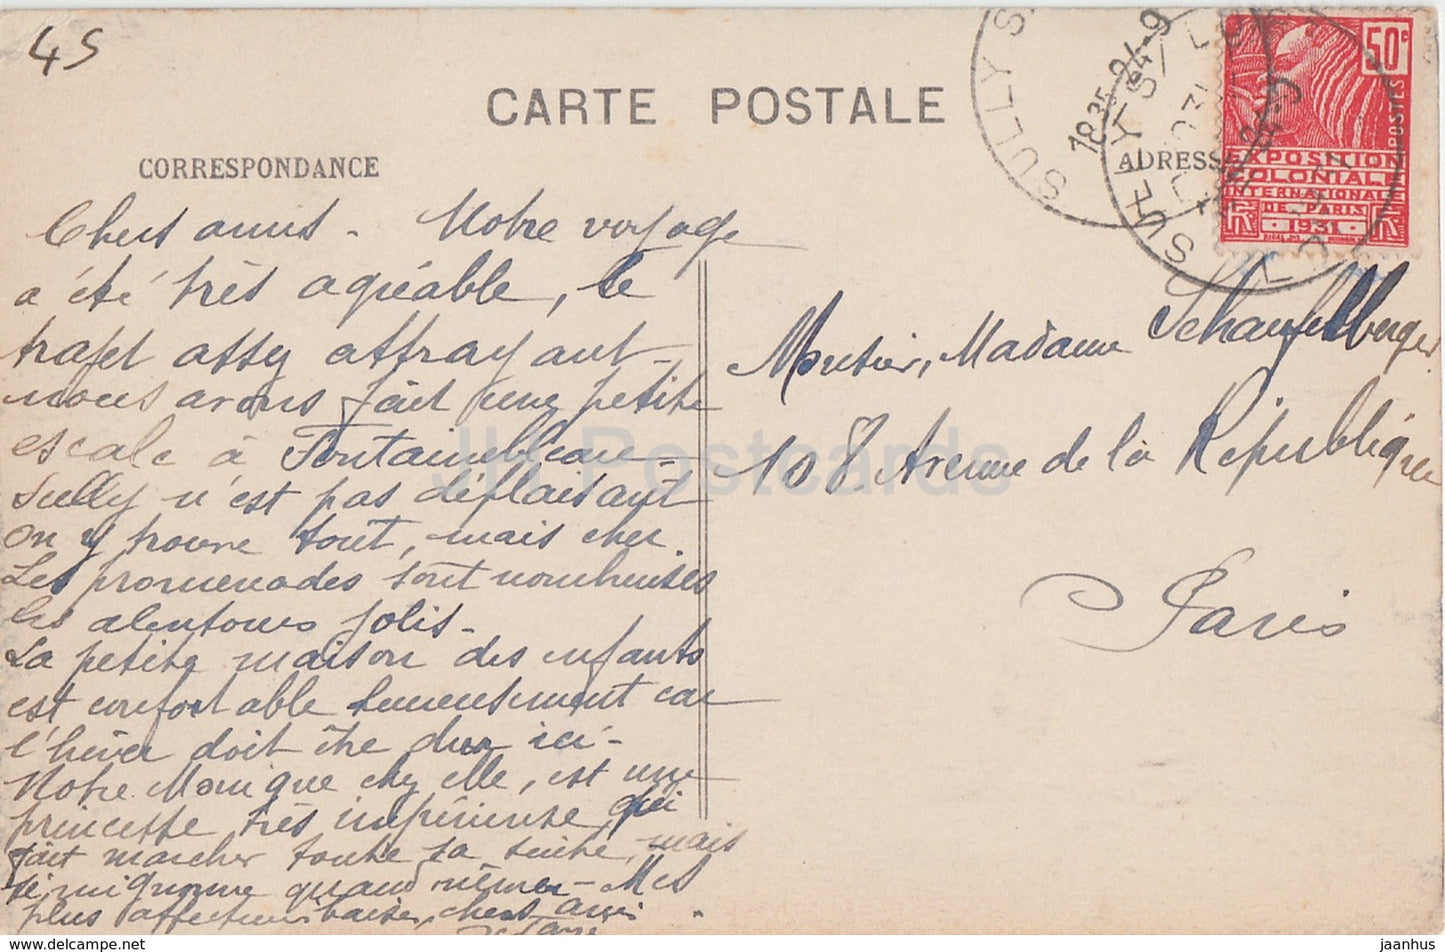 45
CARTE POSTALE
CORRESPONDANCE
ADRESSE
SULLY S
18 35
24-9
SULLY S/ LOI
50c
POSTES
EXPOSITION
COLONIALE
INTERNATIONALE
DE PARIS
1931
Chers amis - Notre voyage
a été très agréable, le
trajet assez attrayant -
nous avons fait une petite
escale à Fontainebleau -
Sully n'est pas déplaisant
on y trouve tout, mais cher.
Les promenades sont nombreuses
les alentours jolis -
La petite maison des enfants
est confortable heureusement car
l'hiver doit être dur ici -
Notre Monique chez elle, est une
princesse très impérieuse qui
fait marcher toute sa suite, mais
si mignonne quand même - Mes
plus affectueux baisers, chers amis
Monsieur, Madame Schaufelberger
108 Avenue de la République
Paris
JH Postcards
delcampe.net
jaanhus